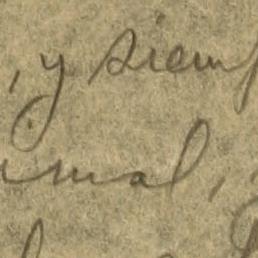 , y siemp
mal,